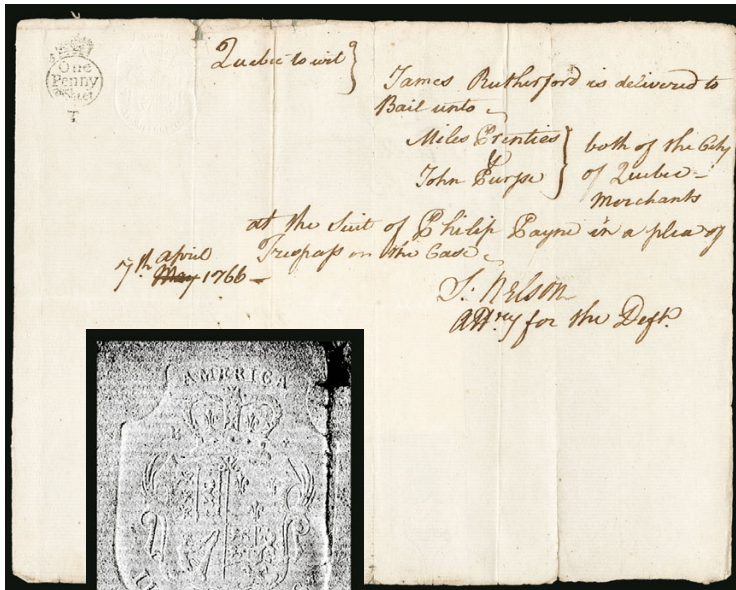 One
Penny
T
Quebec to wit }
James Rutherford is delivered to
Bail unto
Miles Prenties } both of the City
& of Quebec
John Purfse Merchants
at the Suit of Philip Payne in a plea of
Trespass on the Case
7th april
May 1766
S. Nelson
Att.ry for the Deft.
AMERICA